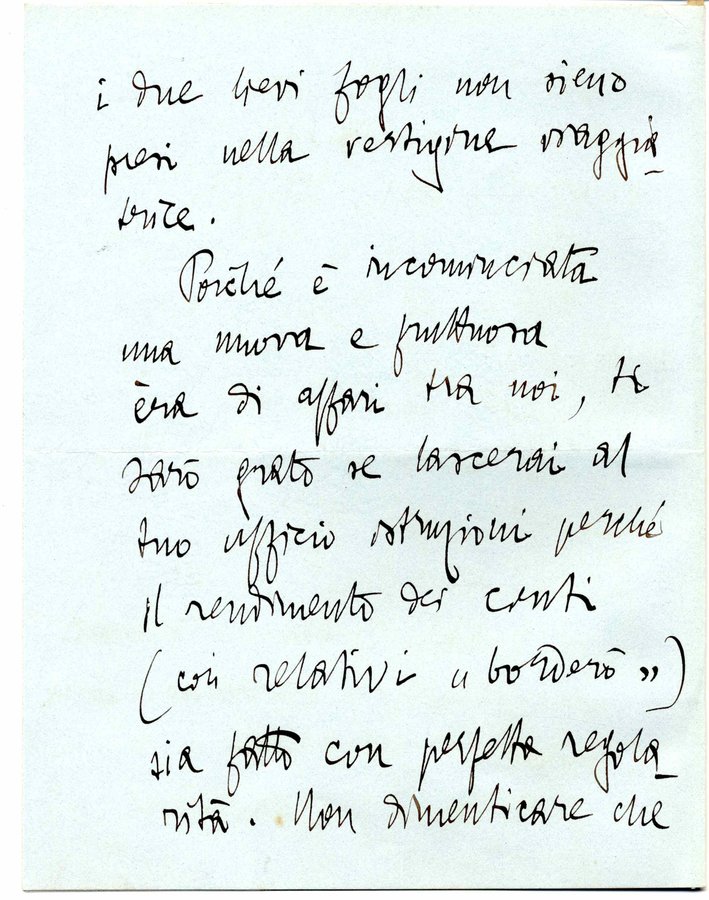 i due lievi fogli non sieno
presi nella vertigine viaggia-
trice.
Perché è incominciata
una nuova e fruttuosa
èra di affari tra noi, ti
sarò grato se lascerai al
tuo ufficio istruzioni perché
il rendimento dei conti
(coi relativi « borderò »)
sia fatto con perfetta regola-
rità. Non dimenticare che